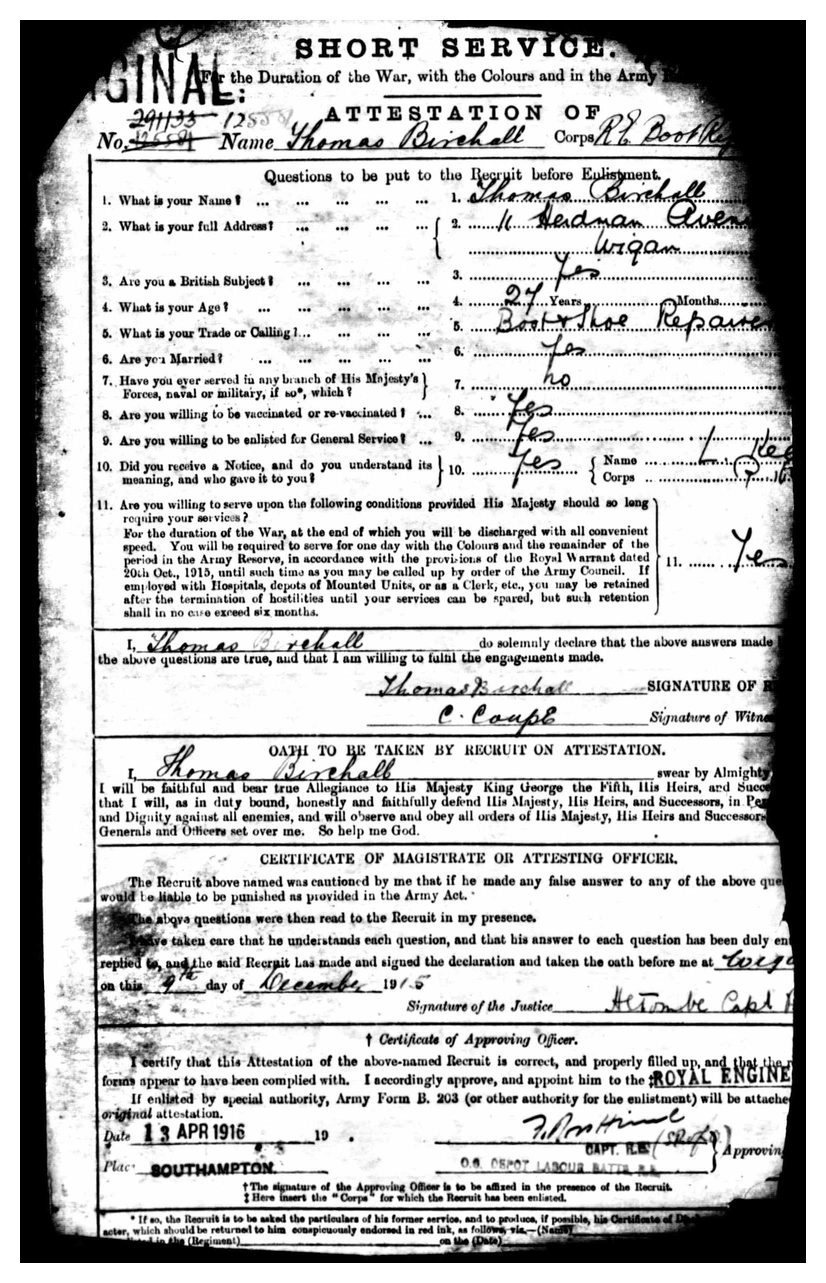 SHORT SERVICE.
GINAL:
For the Duration of the War, with the Colours and in the Army
ATTESTATION OF
291133
No. 125581 Name Thomas Birchall Corps R E Boot Rep
Questions to be put to the Recruit before Enlistment.
1. What is your Name? ... ... ... ... ... 1. Thomas Birchall
2. What is your full Address? ... ... ... 2. 11 Herdman Aven
Wigan
3. Are you a British Subject? ... ... ... ... 3. Yes
4. What is your Age? ... ... ... ... ... 4. 27 Years Months
5. What is your Trade or Calling? ... ... ... ... 5. Boot & Shoe Repairer
6. Are you Married? ... ... ... ... ... 6. Yes
7. Have you ever served in any branch of His Majesty's
Forces, naval or military, if so*, which? 7. no
8. Are you willing to be vaccinated or re-vaccinated? ... 8. Yes
9. Are you willing to be enlisted for General Service? ... 9. Yes
10. Did you receive a Notice, and do you understand its
meaning, and who gave it to you? 10. Yes Name
Corps
11. Are you willing to serve upon the following conditions provided His Majesty should so long
require your services?
For the duration of the War, at the end of which you will be discharged with all convenient
speed. You will be required to serve for one day with the Colours and the remainder of the
period in the Army Reserve, in accordance with the provisions of the Royal Warrant dated
20th Oct., 1915, until such time as you may be called up by order of the Army Council. If
employed with Hospitals, depots of Mounted Units, or as a Clerk, etc., you may be retained
after the termination of hostilities until your services can be spared, but such retention
shall in no case exceed six months.
11. Yes
I, Thomas Birchall do solemnly declare that the above answers made
the above questions are true, and that I am willing to fulfil the engagements made.
Thomas Birchall SIGNATURE OF R
C. Coupe Signature of Witne
OATH TO BE TAKEN BY RECRUIT ON ATTESTATION.
I, Thomas Birchall swear by Almighty
I will be faithful and bear true Allegiance to His Majesty King George the Fifth, His Heirs, and Succe
that I will, as in duty bound, honestly and faithfully defend His Majesty, His Heirs, and Successors, in Pe
and Dignity against all enemies, and will observe and obey all orders of His Majesty, His Heirs and Successors
Generals and Officers set over me. So help me God.
CERTIFICATE OF MAGISTRATE OR ATTESTING OFFICER.
The Recruit above named was cautioned by me that if he made any false answer to any of the above que
would be liable to be punished as provided in the Army Act.
The above questions were then read to the Recruit in my presence.
I have taken care that he understands each question, and that his answer to each question has been duly en
replied to, and the said Recruit has made and signed the declaration and taken the oath before me at Wiga
on this 9th day of December 1915
Signature of the Justice Capt
† Certificate of Approving Officer.
I certify that this Attestation of the above-named Recruit is correct, and properly filled up, and that the
forms appear to have been complied with. I accordingly approve, and appoint him to the ‡ROYAL ENGINE
If enlisted by special authority, Army Form B. 203 (or other authority for the enlistment) will be attache
original attestation.
Date 13 APR 1916 19 .
CAPT. R.E. Approvin
Place SOUTHAMPTON. O.C. DEPOT LABOUR BATTS R.E.
† The signature of the Approving Officer is to be affixed in the presence of the Recruit.
‡ Here insert the "Corps" for which the Recruit has been enlisted.
* If so, the Recruit is to be asked the particulars of his former service, and to produce, if possible, his Certificate of
acter, which should be returned to him conspicuously endorsed in red ink, as follows, viz.—(Name)
listed in the (Regiment) on the (Date)